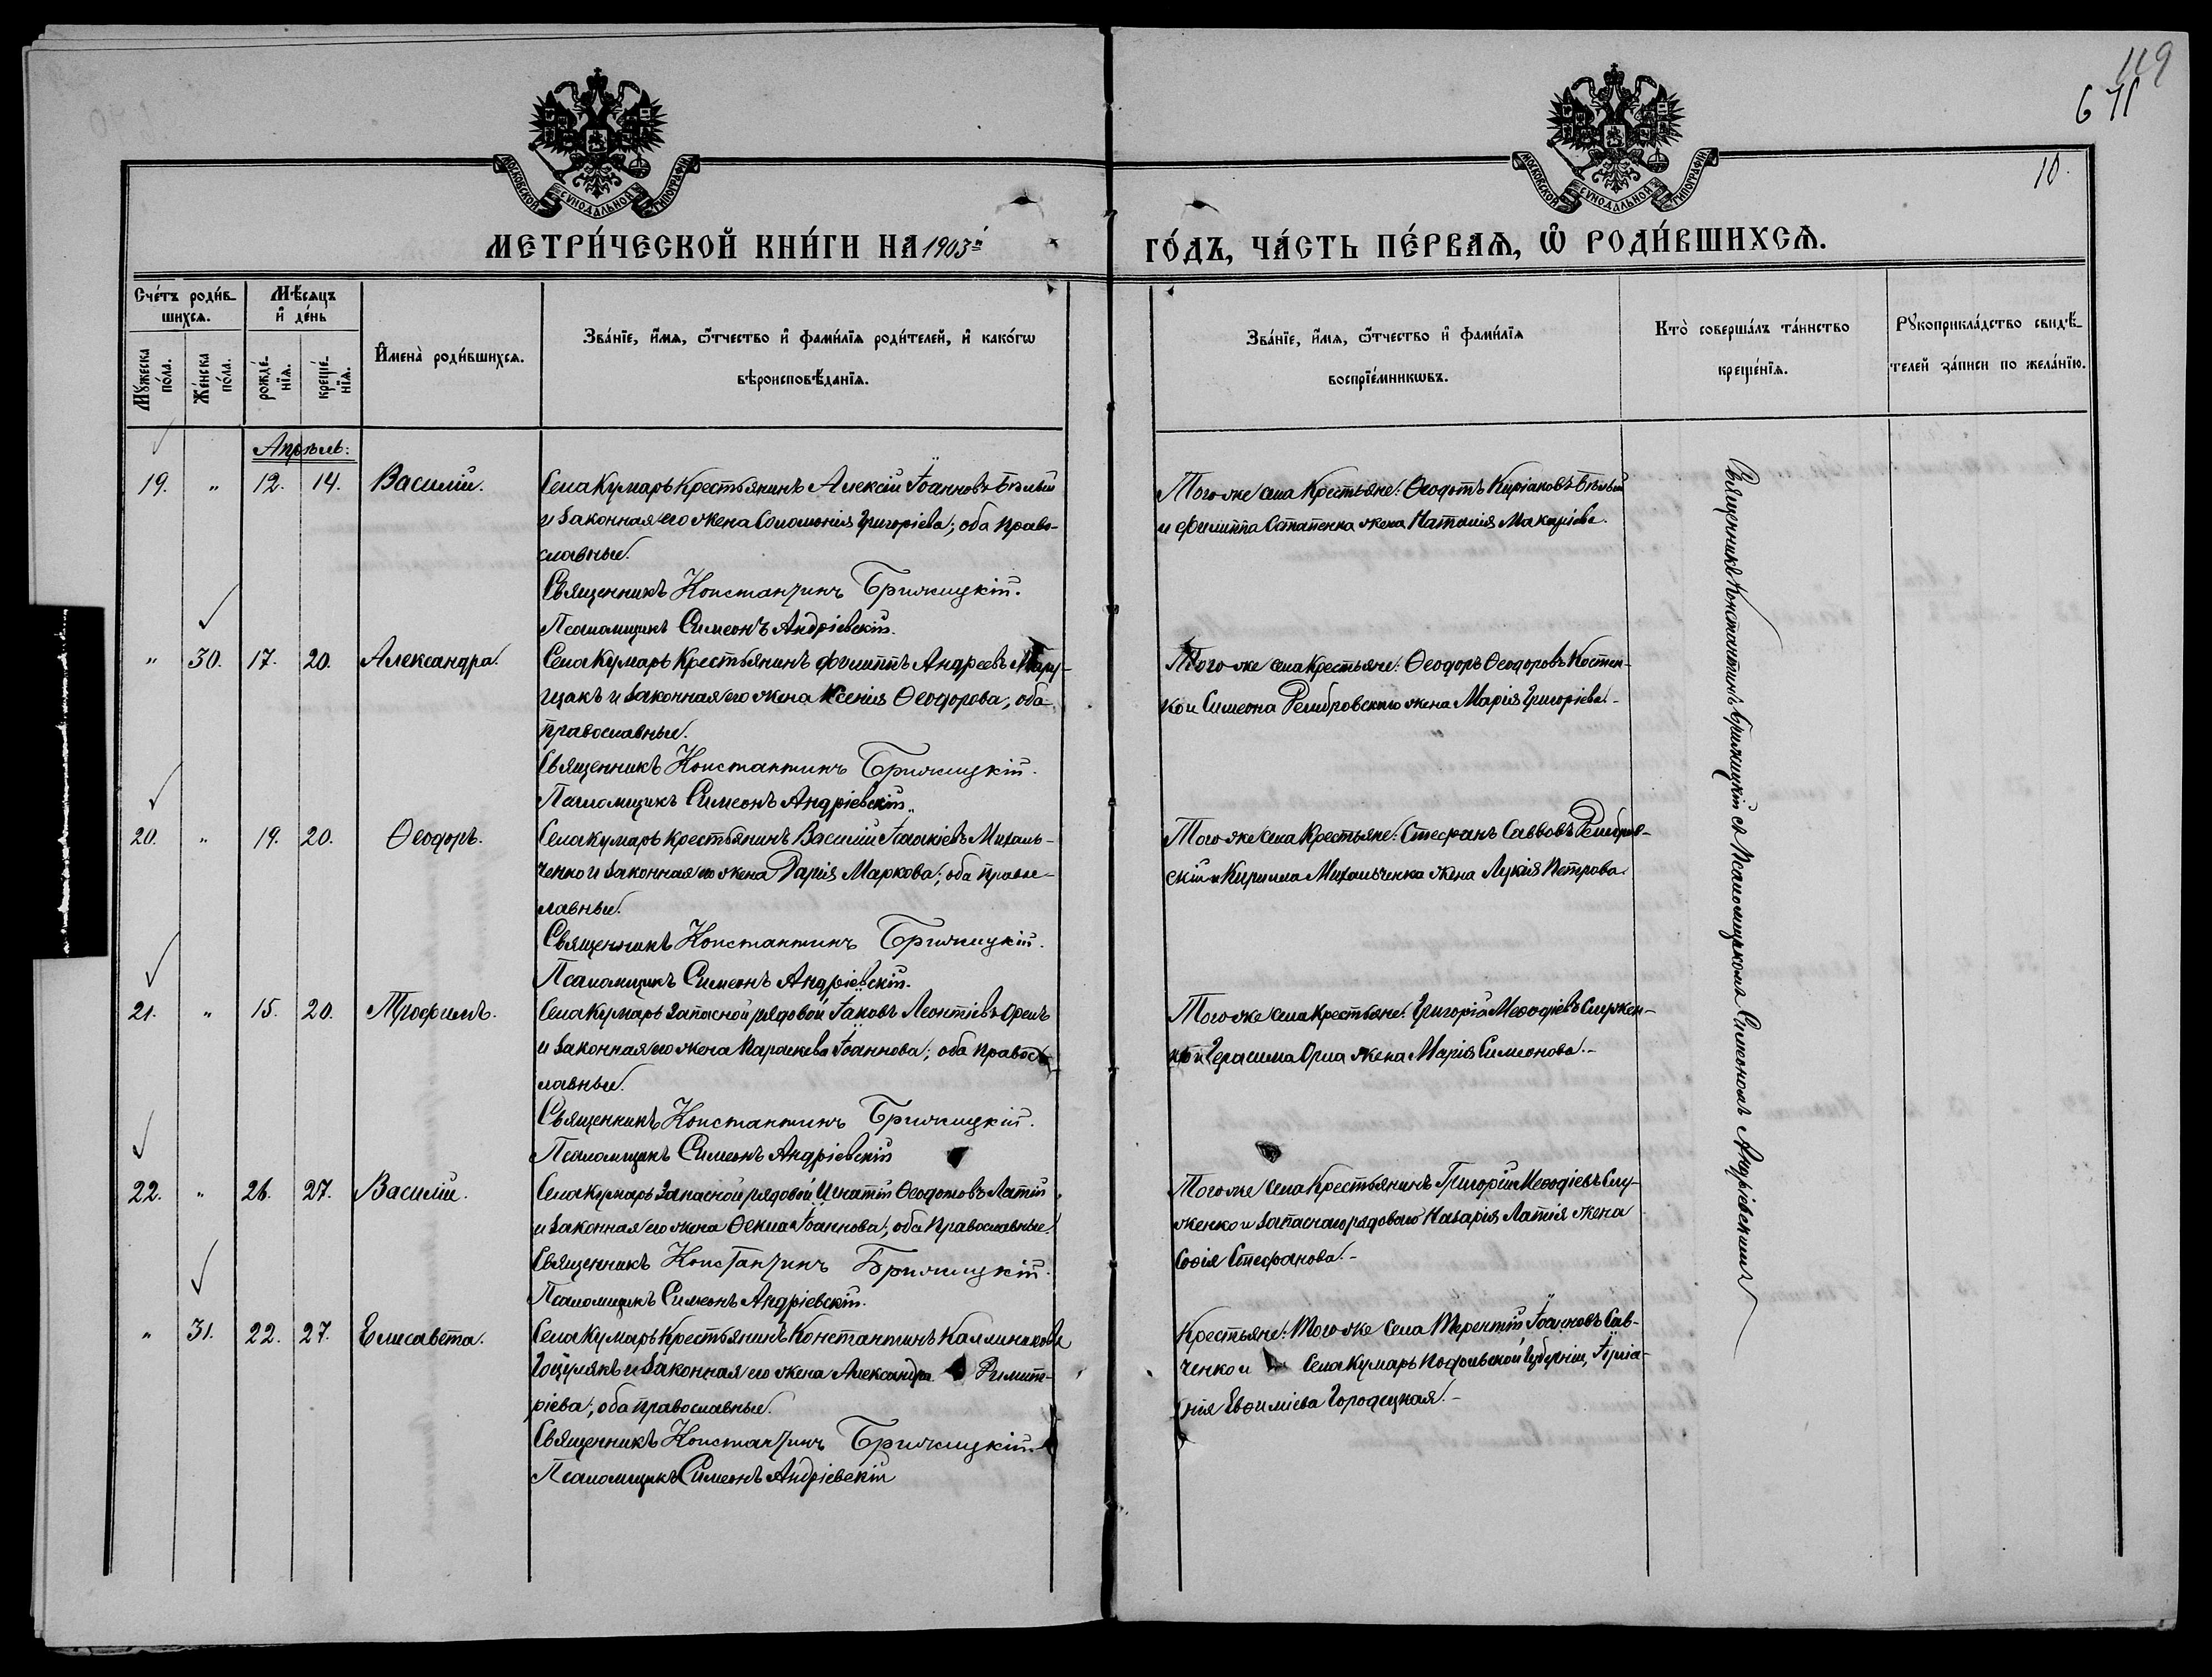 119
6 71
10.
МОСКОВСКОЙ СѴНОДАЛЬНОЙ ТИПОГРАФІИ
МОСКОВСКОЙ СѴНОДАЛЬНОЙ ТИПОГРАФІИ
МЕТРИ́ЧЕСКОЙ КНИ́ГИ НА 1903й
ГО́ДЪ, ЧА́СТЬ ПЕ́РВАѦ, Ѿ РОДИ́ВШИХСѦ.
Сче́тъ роди́в-
шихсѧ.
Мꙋ́жеска по́ла.
Же́нска по́ла.
Мѣ́сѧцъ
и҆ де́нь
рожде́-
нїѧ.
креще́-
нїѧ.
И҆мена̀ роди́вшихсѧ.
Зва́нїе, и҆́мѧ, ѻ҆́тчество и҆ фами́лїѧ роди́телей, и҆ како́гѡ
вѣроисповѣ́данїѧ.
Зва́нїе, и҆́мѧ, ѻ҆́тчество и҆ фами́лїѧ
воспрїе́мникѡвъ.
Кто̀ соверша́лъ та́инство
креще́нїѧ.
Рꙋкоприкла́дство свидѣ́-
телей за́писи по жела́нїю.
Апрѣль:
19. " 12. 14. Василій.
Села Кумарь Крестьянинъ Алексій Іоанновъ Бѣлый
и законная его жена Соломонія Григоріева; оба право-
славные.
Священникъ Константинъ Бржицкій.
Псаломщикъ Симеонъ Андріевскій.
Того же села Крестьяне: Ѳеодотъ Киріаковъ Бѣлый
и Филиппа Остапенка жена Наталія Макаріева.
" 30. 17. 20. Александра.
Села Кумарь Крестьянинъ Филиппъ Андреевъ
щакъ и законная его жена Ксенія Ѳеодорова, оба
православные.
Священникъ Константинъ Бржицкій.
Псаломщикъ Симеонъ Андріевскій.
Того же села Крестьяне: Ѳеодоръ Ѳеодоровъ Костен-
ко и Симеона жена Марія Григоріева.-
20. " 19. 20. Ѳеодоръ.
Села Кумарь Крестьянинъ Василій Михаль-
ченко и законная его жена Дарія Маркова; оба правос-
лавные.
Священникъ Константинъ Бржицкій.
Псаломщикъ Симеонъ Андріевскій.
Того же села Крестьяне: Стефанъ Савовъ
скій и Кирилла Михальченка жена Лукія Петрова.
21. " 15. 20. Трофимъ.
Села Кумарь запасной рядовой Іаковъ Леонтіевъ Орелъ
и законная его жена Параскева Іоаннова; оба правос-
лавные.
Священникъ Константинъ Бржицкій.
Псаломщикъ Симеонъ Андріевскій
Того же села Крестьяне: Григорій Меѳодіевъ Служен-
ко и Герасима Орла жена Марія Симеонова.-
22. " 26. 27. Василій.
Села Кумарь запасной рядовой Игнатій Ѳеодотовъ Лапій
и законная его жена Ѳекла Іоаннова; оба православные.
Священникъ Константинъ Бржицкій.
Псаломщикъ Симеонъ Андріевскій.
Того же села Крестьянинъ Григорій Меѳодіевъ Слу-
женко и запаснаго рядового Назарія Лапія жена
Софія Стефанова.-
" 31. 22. 27. Елисавета.
Села Кумарь Крестьянинъ Константинъ Каллиниковъ
Гоцулякъ и законная его жена Александра Димит-
ріева; оба православные.
Священникъ Константинъ Бржицкій.
Псаломщикъ Симеонъ Андріевскій
Крестьяне: Того же села Терентій Іоанновъ Сав-
ченко и Села Кумарь Подольской Губерніи,
нія Евѳиміева Городецкая.-
Священникъ Константинъ Бржицкій съ Псаломщикомъ Симеономъ Андріевскимъ